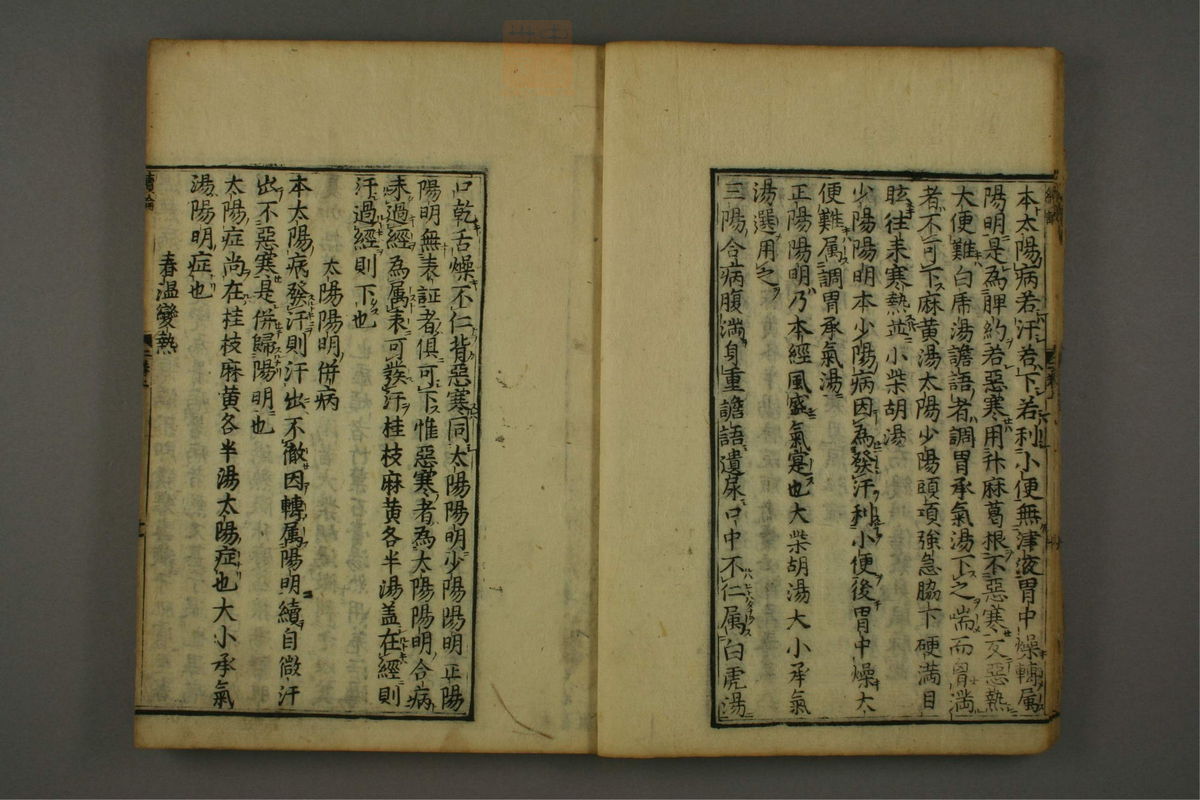 本太陽病若汗若下若利小便無津液胃中燥轉属
陽明是為脾約若惡寒用升麻葛根不惡寒又惡熱
大便難白虎湯譫語者調胃承氣湯下之喘而胃満
者不可下麻黄湯太陽少陽頭項強急脇下硬満目
眩往来寒熱並小柴胡湯
少陽陽明本少陽病因為發汗利小便後胃中燥大
便難属調胃承氣湯
正陽陽明乃本經風盛氣寔也大柴胡湯大小承氣
湯選用之
三陽合病腹満身重譫語遺尿口中不仁属白虎湯
口乾舌燥不仁背惡寒同太陽陽明少陽陽明正陽
陽明無表証者俱可下惟惡寒者為太陽陽明合病
未過經為属表可發汗桂枝麻黄各半湯盖在經則
汗過經則下也
太陽陽明併病
本太陽病發汗則汗出不徹因轉属陽明續自微汗
出不惡寒是併歸陽明也
太陽症尚在桂枝麻黄各半湯太陽症也大小承氣
湯陽明症也
春温變熱